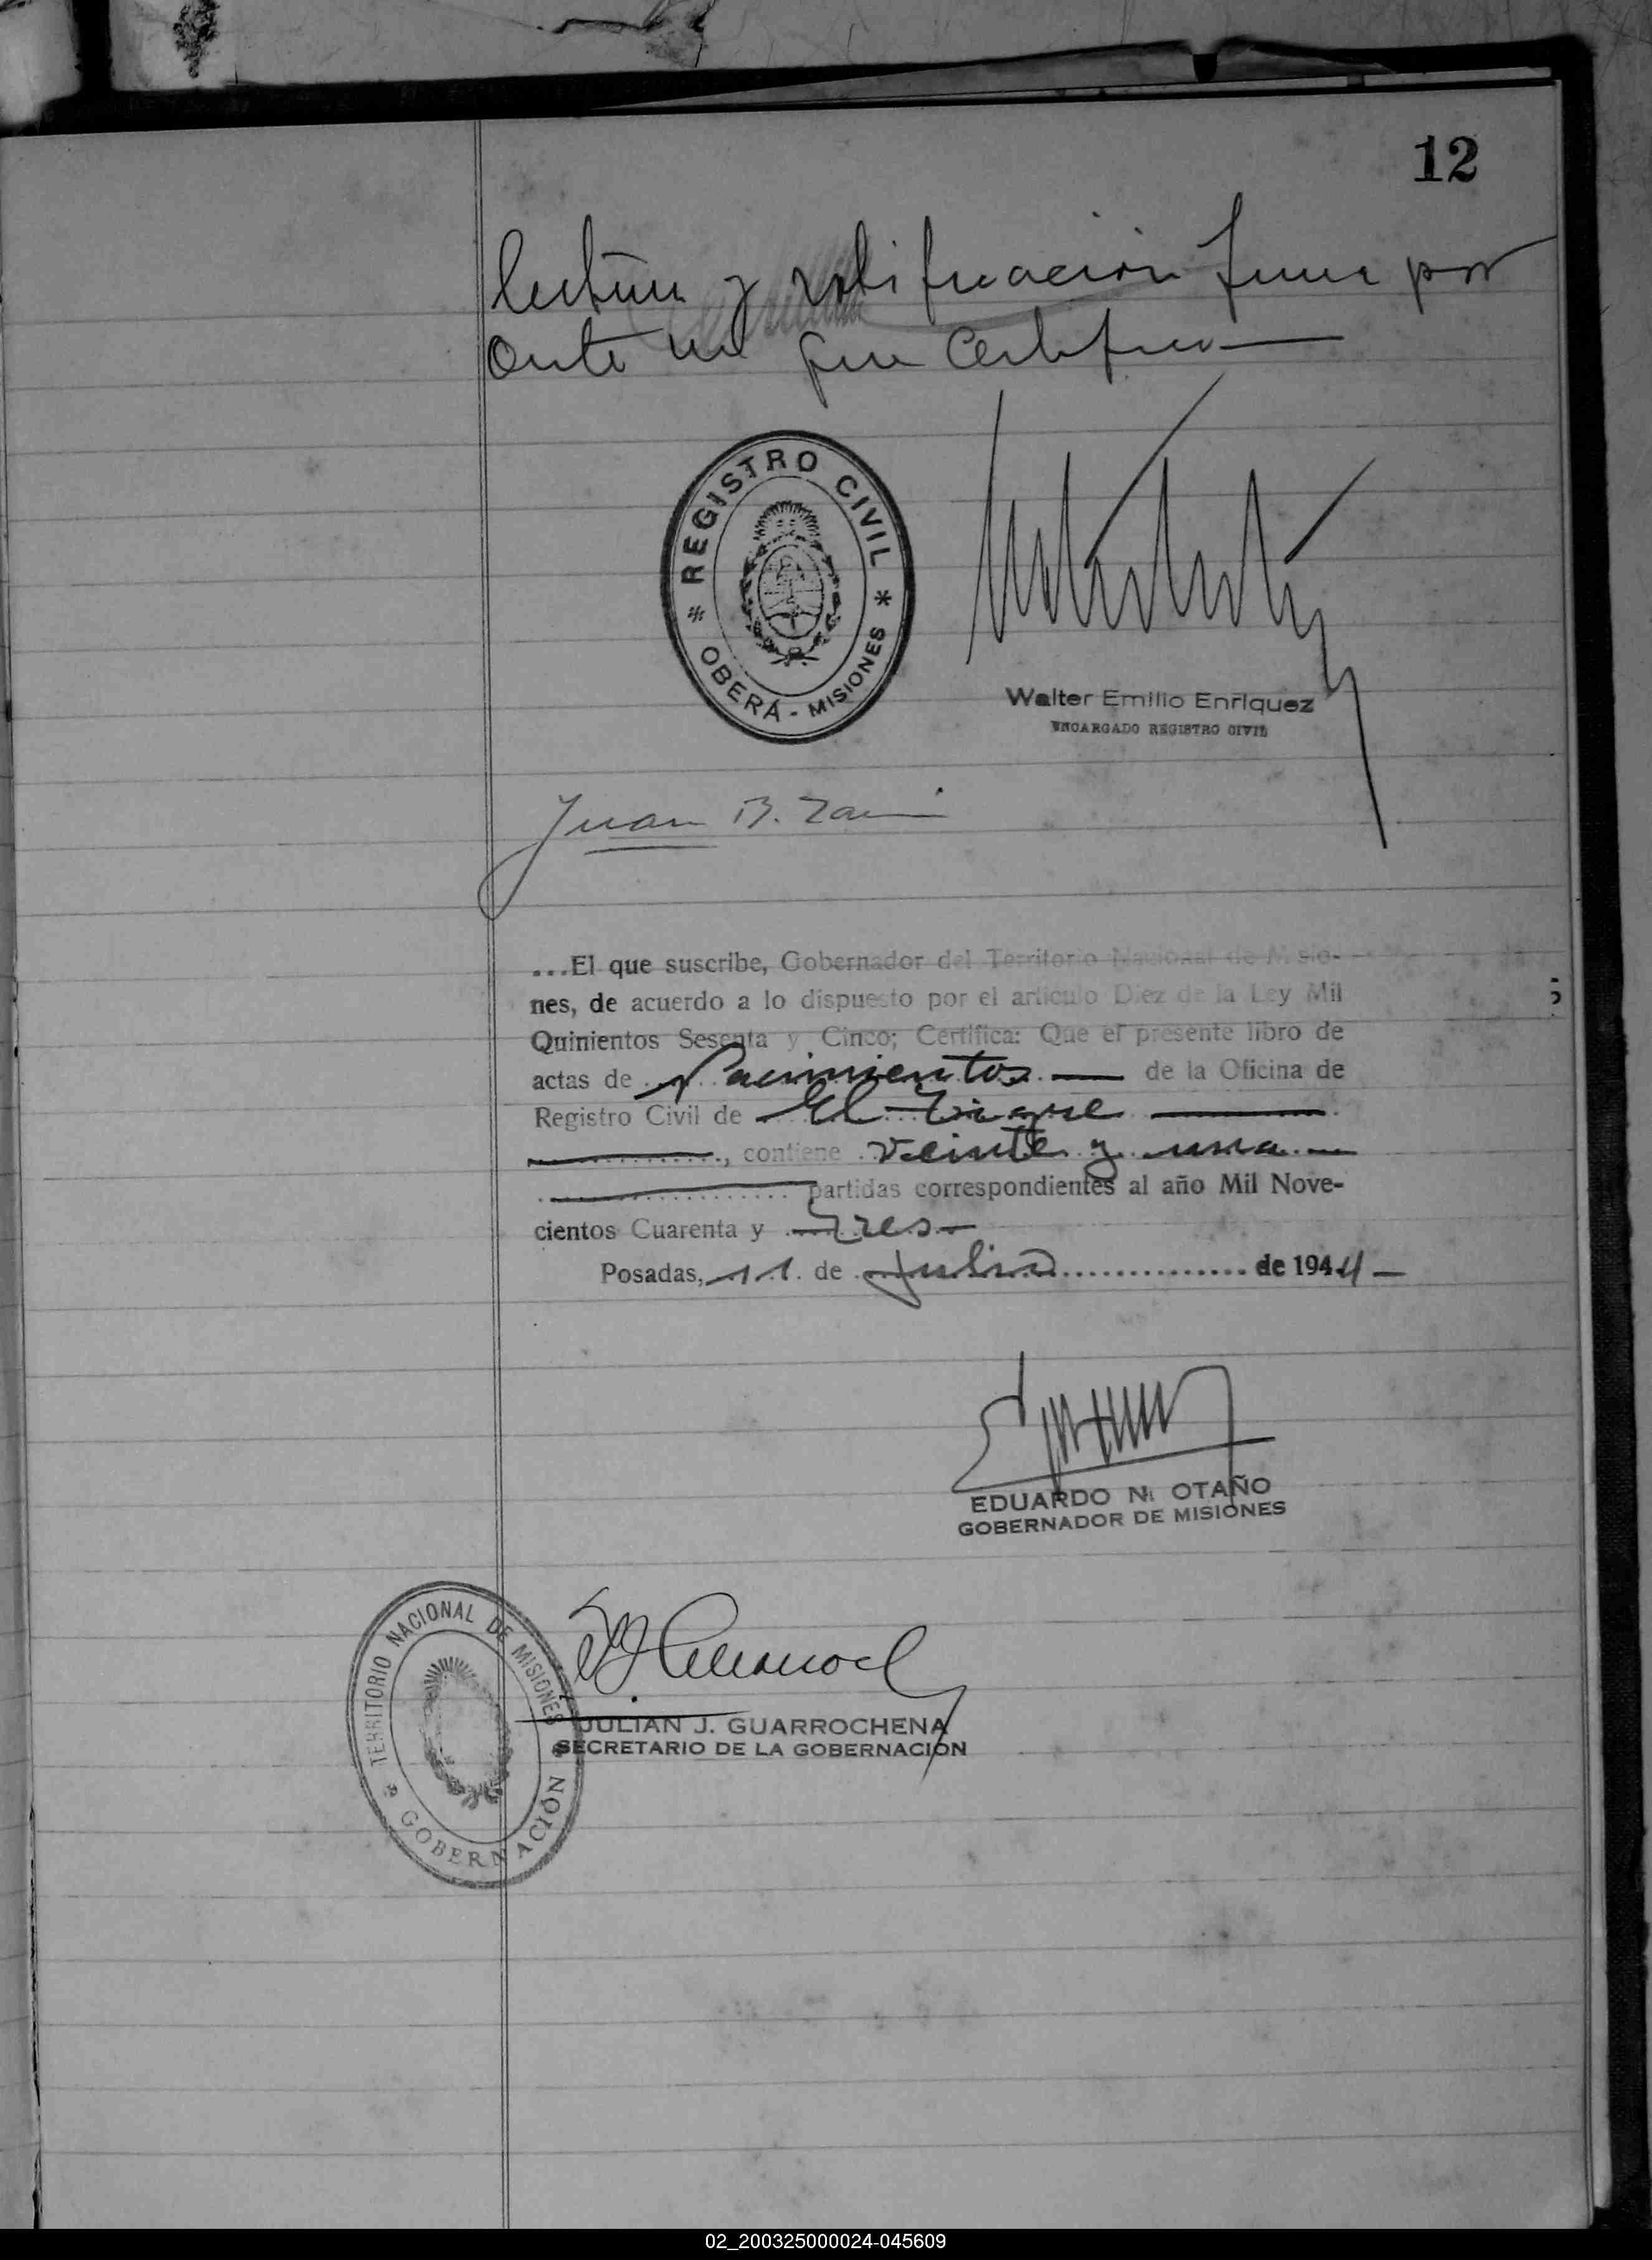 12
lectura y ratificación firma por
Ante mi que Certifico
REGISTRO CIVIL
OBERÁ - MISIONES
Walter Emilio Enriquez
ENCARGADO REGISTRO CIVIL
Juan B.
...El que suscribe, Gobernador del Territorio Nacional de Misio-
nes, de acuerdo a lo dispuesto por el artículo Diez de la Ley Mil
Quinientos Sesenta y Cinco; Certifica: Que el presente libro de
actas de Nacimientos de la Oficina de
Registro Civil de El Tigre
, contiene veinte y una
partidas correspondientes al año Mil Nove-
cientos Cuarenta y Tres
Posadas, 11 de Julio de 1944
EDUARDO N. OTAÑO
GOBERNADOR DE MISIONES
TERRITORIO NACIONAL DE MISIONES
GOBERNACIÓN
JULIAN J. GUARROCHENA
SECRETARIO DE LA GOBERNACIÓN
02_200325000024-045609